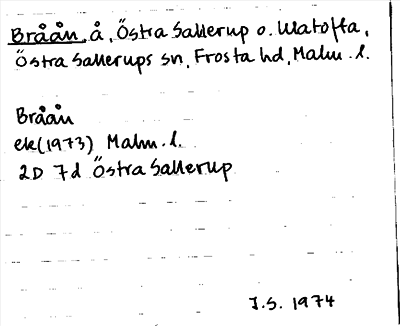 Bråån, å, Östra Sallerup o. Ulatofta,
Östra Sallerups sn, Frosta hd, Malm. l.
Bråån
ek(1973) Malm. l.
2D 7d Östra Sallerup
J.S. 1974